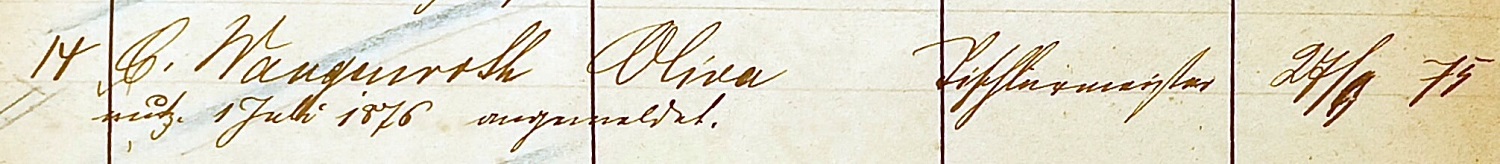 14 C. Wangenroth Oliva Tischlermeister 27/9 75
1 Juli 1876 angemeldet.